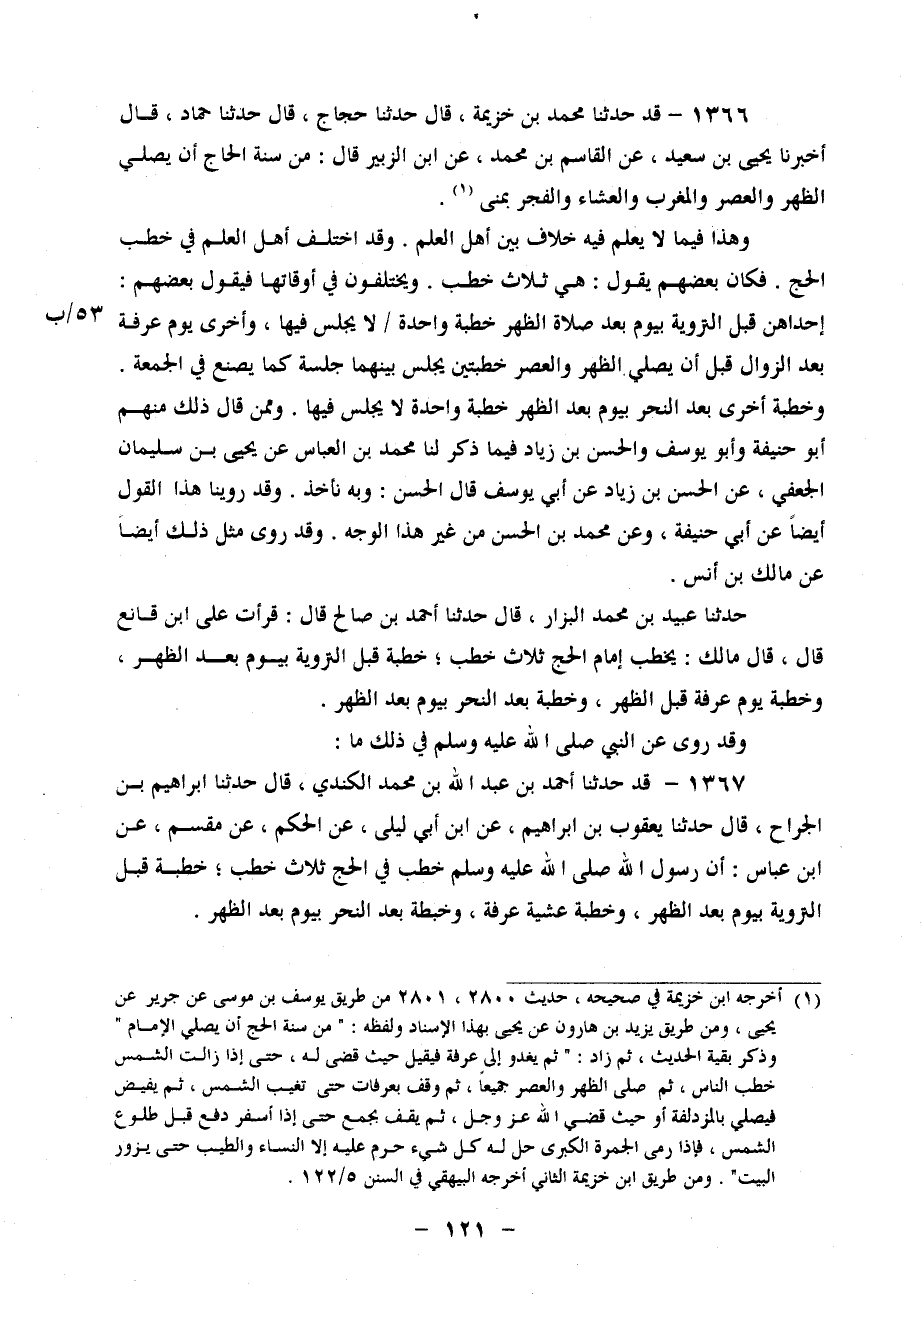 ١٣٦٦ – قد حدثنا محمد بن خزيمة ، قال حدثنا حجاج ، قال حدثنا حماد ، قـال
أخبرنا يحيى بن سعيد ، عن القاسم بن محمد ، عن ابن الزبير قال : من سنة الحاج أن يصلـي
الظهر والعصر والمغرب والعشاء والفجر بمنى (١) .
وهذا فيما لا يعلم فيه خلاف بين أهل العلم . وقد اختلـف أهـل العلـم في خطـب
الحج . فكان بعضهـم يقول : هـي ثـلاث خطـب . ويختلفـون في أوقاتهـا فيقـول بعضهـم :
إحداهن قبل التروية بيوم بعد صلاة الظهر خطبة واحدة / لا يجلس فيها ، وأخرى يوم عرفـة
٥٣/ب
بعد الزوال قبل أن يصلي الظهر والعصر خطبتين يجلس بينهما جلسة كما يصنع في الجمعة .
وخطبة أخرى بعد النحر بيوم بعد الظهر خطبة واحدة لا يجلس فيها . وممن قال ذلك منهـم
أبو حنيفة وأبو يوسف والحسن بن زياد فيما ذكر لنا محمد بن العباس عن يحيى بـن سـليمان
الجعفي ، عن الحسن بن زياد عن أبي يوسف قال الحسن : وبه نأخذ . وقد روينا هذا القول
أيضاً عن أبي حنيفة ، وعن محمد بن الحسن من غير هذا الوجه . وقد روى مثل ذلـك أيضـاً
عن مالك بن أنس .
حدثنا عبيد بن محمد البزار ، قال حدثنا أحمد بن صالح قال : قرأت على ابن قـانع
قال ، قال مالك : يخطب إمام الحج ثلاث خطب ؛ خطبة قبل التروية بيـوم بعـد الظهـر ،
وخطبة يوم عرفة قبل الظهر ، وخطبة بعد النحر بيوم بعد الظهر .
وقد روى عن النبي صلى الله عليه وسلم في ذلك ما :
١٣٦٧ – قد حدثنا أحمد بن عبد الله بن محمد الكندي ، قال حدثنا ابراهيم بـن
الجراح ، قال حدثنا يعقوب بن ابراهيم ، عن ابن أبي ليلى ، عن الحكم ، عن مقسـم ، عـن
ابن عباس : أن رسول الله صلى الله عليه وسلم خطب في الحج ثلاث خطب ؛ خطبـة قبـل
التروية بيوم بعد الظهر ، وخطبة عشية عرفة ، وخبطة بعد النحر بيوم بعد الظهر .
(١) أخرجه ابن خزيمة في صحيحه ، حديث ٢٨٠٠ ، ٢٨٠١ من طريق يوسف بن موسى عن جرير عن
يحيى ، ومن طريق يزيد بن هارون عن يحيى بهذا الإسناد ولفظه : " من سنة الحج أن يصلي الإمـام "
وذكر بقية الحديث ، ثم زاد : " ثم يغدو إلى عرفة فيقيل حيث قضى لـه ، حتـى إذا زالـت الشـمس
خطب الناس ، ثم صلى الظهر والعصر جميعاً ، ثم وقف بعرفات حتى تغيب الشـمس ، ثـم يفيـض
فيصلي بالمزدلفة أو حيث قضي الله عـز وجـل ، ثـم يقـف بجمع حتـى إذا أسفر دفع قبـل طلـوع
الشمس ، فإذا رمى الجمرة الكبرى حل لـه كـل شيء حرم عليـه إلا النسـاء والطيب حتـى يـزور
البيت" . ومن طريق ابن خزيمة الثاني أخرجه البيهقي في السنن ١٢٢/٥ .
– ١٢١ –